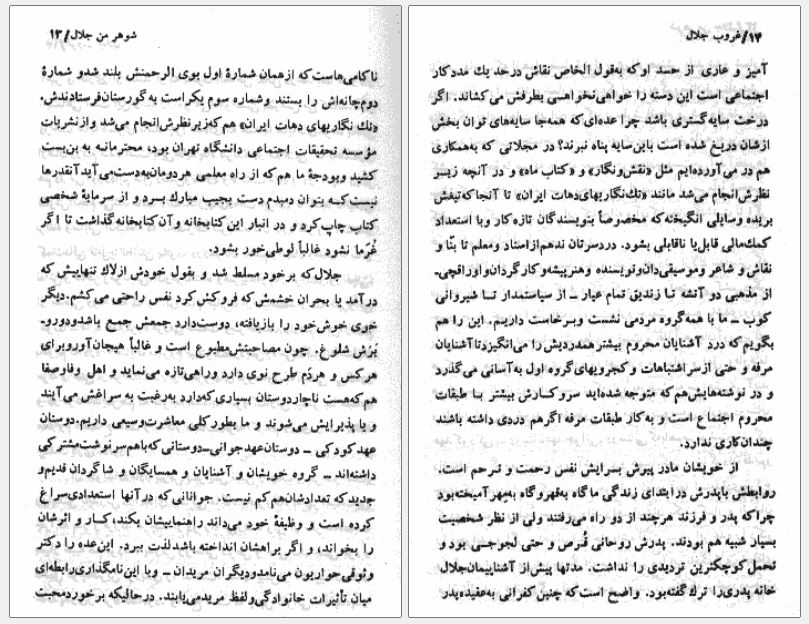 شوهر من جلال/۱۳
ناکامی‌هاست که از همان شمارهٔ اول بوی الرحمنش بلند شد و شمارهٔ
دوم چانه‌اش را بستند و شماره سوم یکراست به گورستان فرستادندش.
«تك نگاریهای دهات ایران» هم که زیر نظرش انجام می‌شد و از نشریات
مؤسسه تحقیقات اجتماعی دانشگاه تهران بود، محترمانه به بن‌بست
کشید و بودجهٔ ما هم که از راه معلمی هر دومان به‌دست می‌آید آنقدرها
نیست که بتوان دمبدم دست بجیب مبارك برد و از سرمایهٔ شخصی
کتاب چاپ کرد و در انبار این کتابخانه و آن کتابخانه گذاشت تا اگر
غُرَما نشود غالباً لوطی‌خور بشود.
جلال که بر خود مسلط شد و بقول خودش از لاك تنهاییش که
درآمد یا بحران خشمش که فروکش کرد نفس راحتی می‌کشم. دیگر
خوی خوش خود را بازیافته، دوست دارد جمعش جمع باشد و دورو‌-
بَرَش شلوغ. چون مصاحبتش مطبوع است و غالباً هیجان‌آور و برای
هر کس و هر دَم طرح نوی دارد و راهی تازه می‌نماید و اهل وفا و صفا
هم که هست ناچار دوستان بسیاری که دارد به رغبت به سراغش می‌آیند
و یا پذیرایش می‌شوند و ما بطور کلی معاشرت وسیعی داریم. دوستان
عهد کودکی ــ دوستان عهد جوانی‌ــ دوستانی که با هم سرنوشت مشترکی
داشته‌اند ــ گروه خویشان و آشنایان و همسایگان و شاگردان قدیم و
جدید که تعدادشان هم کم نیست. جوانانی که در آنها استعدادی سراغ
کرده است و وظیفهٔ خود می‌داند راهنماییشان بکند، کار و اثرشان
را بخواند، و اگر براهشان انداخته باشد لذت ببرد. این عده را دکتر
وثوقی حواریون می‌نامد و دیگران مریدان ــ و با این نامگذاری رابطه‌ای
میان تأثیرات خانوادگی و لفظ مرید می‌یابند. در حالیکه برخورد محبت
۱۴/غروب جلال
آمیز و عاری از حسد او که به‌قول الخاص نقاش در حد یك مددکار
اجتماعی است این دسته را خواهی نخواهی بطرفش می‌کشاند. اگر
درخت سایه‌گستری باشد چرا عده‌ای که همه‌جا سایه‌های توان بخش
ازشان دریغ شده است باین سایه پناه نبرند؟ در مجلاتی که به‌همکاری
هم در می‌آورده‌ایم مثل «نقش و نگار» و «کتاب ماه» و در آنچه زیر
نظرش انجام می‌شد مانند «تك‌نگاریهای دهات ایران» تا آنجا که تیغش
بریده وسایلی انگیخته که مخصوصاً بنویسندگان تازه کار و با استعداد
کمك مالی قابل یا ناقابلی بشود. دردسرتان ندهم از استاد و معلم تا بنّا و
نقاش و شاعر و موسیقی‌دان و نویسنده و هنرپیشه و کارگردان و اوراقچی‌-
از مذهبی دو آتشه تا زندیق تمام عیار ــ از سیاستمدار تا شیروانی
کوب ــ ما با همه گروه مردمی نشست و برخاست داریم. این را هم
بگویم که درد آشنایان محروم بیشتر همدردیش را می‌انگیزد تا آشنایان
مرفه و حتی از سر اشتباهات و کجرویهای گروه اول به‌آسانی می‌گذرد
و در نوشته‌هایش هم که متوجه شده‌اید سر و کارش بیشتر با طبقات
محروم اجتماع است و به کار طبقات مرفه اگر هم دردی داشته باشند
چندان کاری ندارد.
از خویشان مادر پیرش برایش نفس رحمت و ترحم است.
روابطش با پدرش در ابتدای زندگی ما گاه به‌قهر و گاه به‌مهر آمیخته بود
چرا که پدر و فرزند هر چند از دو راه می‌رفتند ولی از نظر شخصیت
بسیار شبیه هم بودند. پدرش روحانی قُرص و حتی لجوجی بود و
تحمل کوچکترین تردیدی را نداشت. مدتها پیش از آشناییمان جلال
خانه پدری را ترك گفته بود. واضح است که چنین کفرانی به عقیده پدر